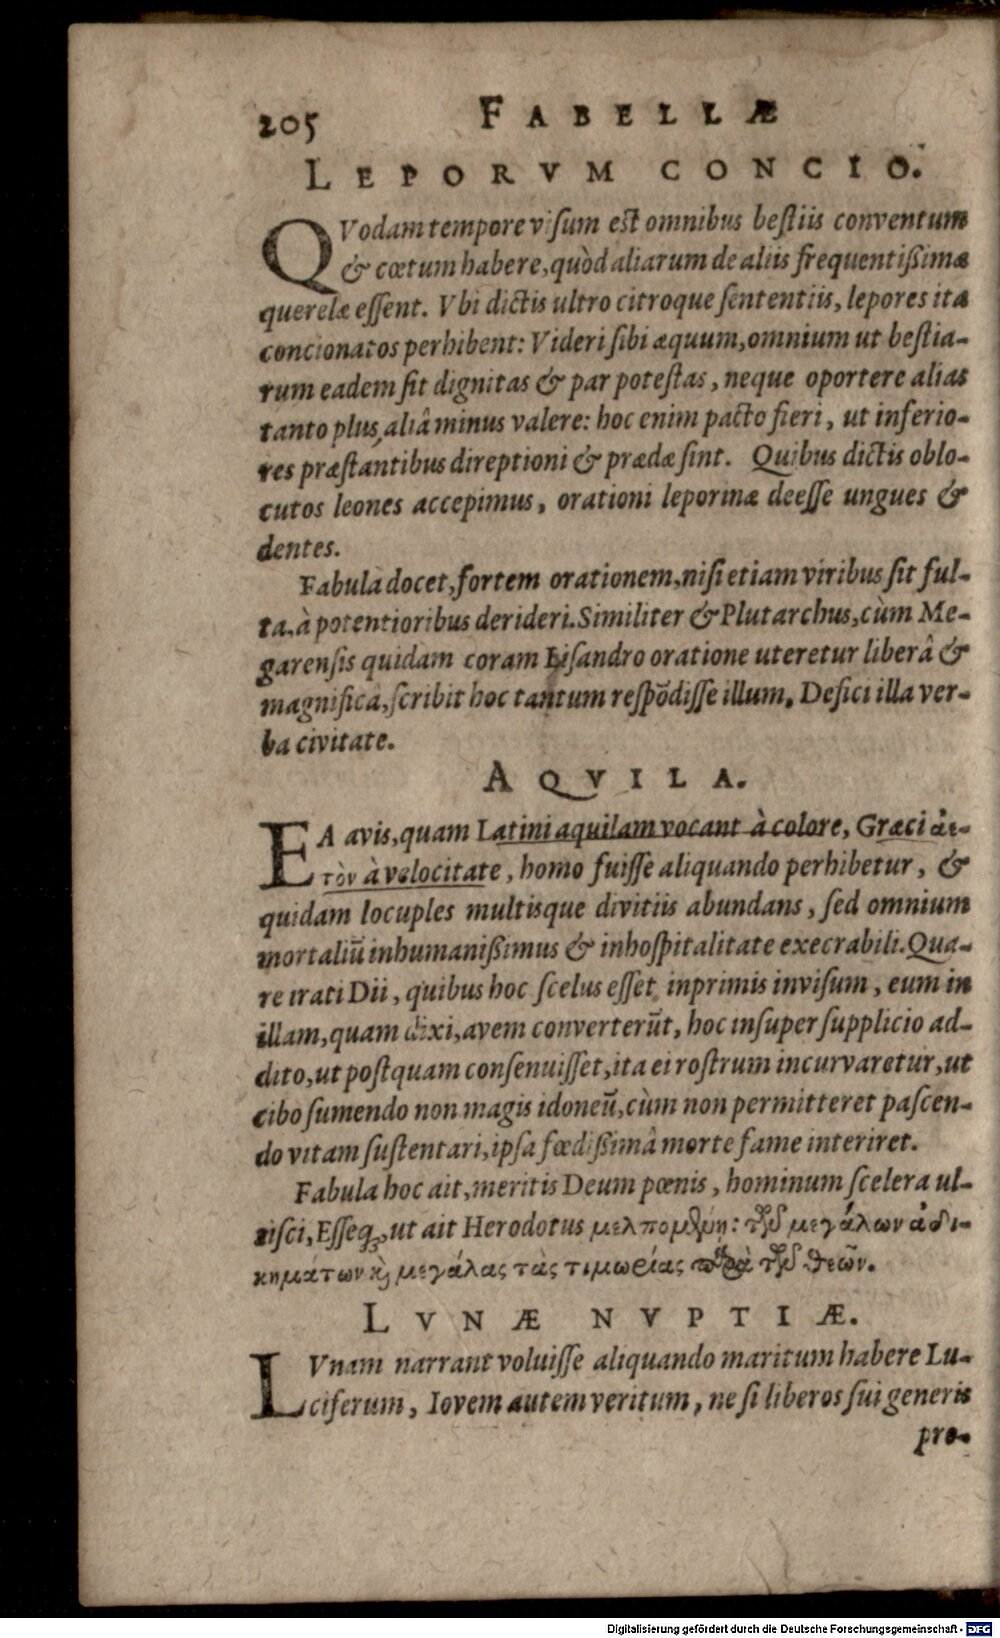 205 FABELLÆ
LEPORVM CONCIO.
QVodam tempore visum est omnibus bestiis conventum
& cœtum habere, quòd aliarum de aliis frequentißimæ
querelæ essent. Vbi dictis ultro citroque sententiis, lepores ita
concionatos perhibent: Videri sibi æquum, omnium ut bestia-
rum eadem sit dignitas & par potestas, neque oportere alias
tanto plus, aliâ minus valere: hoc enim pacto fieri, ut inferio-
res præstantibus direptioni & prædæ sint. Quibus dictis oblo-
cutos leones accepimus, orationi leporinæ deesse ungues &
dentes.
Fabula docet, fortem orationem, nisi etiam viribus sit ful-
ta, à potentioribus derideri. Similiter & Plutarchus, cùm Me-
garensis quidam coram Lisandro oratione uteretur liberâ &
magnifica, scribit hoc tantum respõdisse illum. Defici illa ver-
ba civitate.
AQVILA.
EA avis, quam Latini aquilam vocant à colore, Græci ἀε-
τὸν à velocitate, homo fuisse aliquando perhibetur, &
quidam locuples multisque divitiis abundans, sed omnium
mortaliũ inhumanißimus & inhospitalitate execrabili. Qua-
re irati Dii, quibus hoc scelus esset inprimis invisum, eum in
illam, quam dixi, avem converterũt, hoc insuper supplicio ad-
dito, ut postquam consenuisset, ita ei rostrum incurvaretur, ut
cibo sumendo non magis idoneũ, cùm non permitteret pascen-
do vitam sustentari, ipsa fœdißimâ morte fame interiret.
Fabula hoc ait, meritis Deum pœnis, hominum scelera ul-
cisci, Esseq;, ut ait Herodotus μελπομένη: τῶν μεγάλων ἀδι-
κημάτων καὶ μεγάλας τὰς τιμωρίας παρὰ τῶν θεῶν.
LVNÆ NVPTIÆ.
LVnam narrant voluisse aliquando maritum habere Lu-
ciferum, Iovem autem veritum, ne si liberos sui generis
pro-
Digitalisierung gefördert durch die Deutsche Forschungsgemeinschaft - DFG